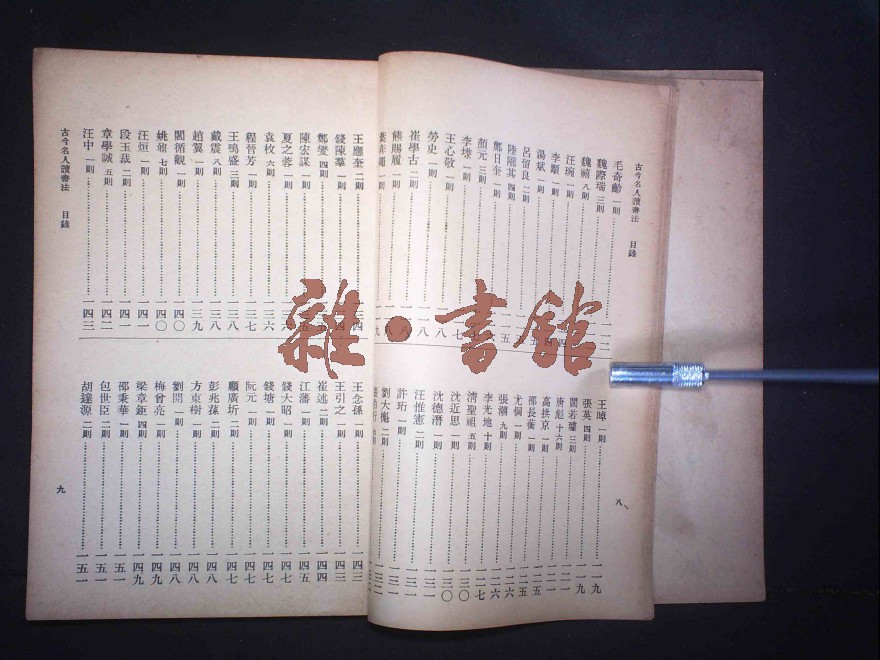 古今名人讀書法 目錄
毛奇齡 一則
魏際瑞 三則
魏禧 八則
汪琬 一則
李顒 一則
湯斌 一則
呂留良 二則
陸隴其 四則
鄭日奎 一則
顏元 三則
李塨 一則
王心敬 一則
勞史 一則
崔學古 二則
熊賜履 一則
王晫 一則 一一九
張英 四則 一一九
閻若璩 三則
唐彪 十六則
高拱京 一則
邵長蘅 一則
尤侗 一則
張潮 九則 一二六
李光地 十則 一二七
清聖祖 五則 一三〇
沈近思 一則 一三〇
沈德潛 一則 一三一
汪惟憲 二則 一三一
許珩 一則 一三一
劉大櫆 二則
八
王應奎 二則
錢陳羣 一則
鄭燮 四則
陳宏謀 一則
夏之蓉 一則
袁枚 六則 一三六
程晉芳 一則 一三七
王鳴盛 三則 一三八
戴震 八則 一三八
趙翼 一則 一三九
閻循觀 一則 一四〇
姚鼐 七則 一四〇
汪烜 一則 一四一
段玉裁 二則 一四一
章學誠 五則 一四二
汪中 一則 一四三
王念孫 一則 一四三
王引之 一則 一四三
崔述 二則 一四四
江藩 一則 一四五
錢大昭 一則 一四七
錢塘 一則 一四七
阮元 一則 一四七
顧廣圻 二則 一四七
彭兆蓀 二則 一四八
方東樹 一則 一四八
劉開 一則 一四八
梅曾亮 一則 一四九
梁章鉅 四則 一四九
邵秉華 一則 一五一
包世臣 二則 一五一
胡達源 二則 一五一
古今名人讀書法 目錄
九
雜·書館